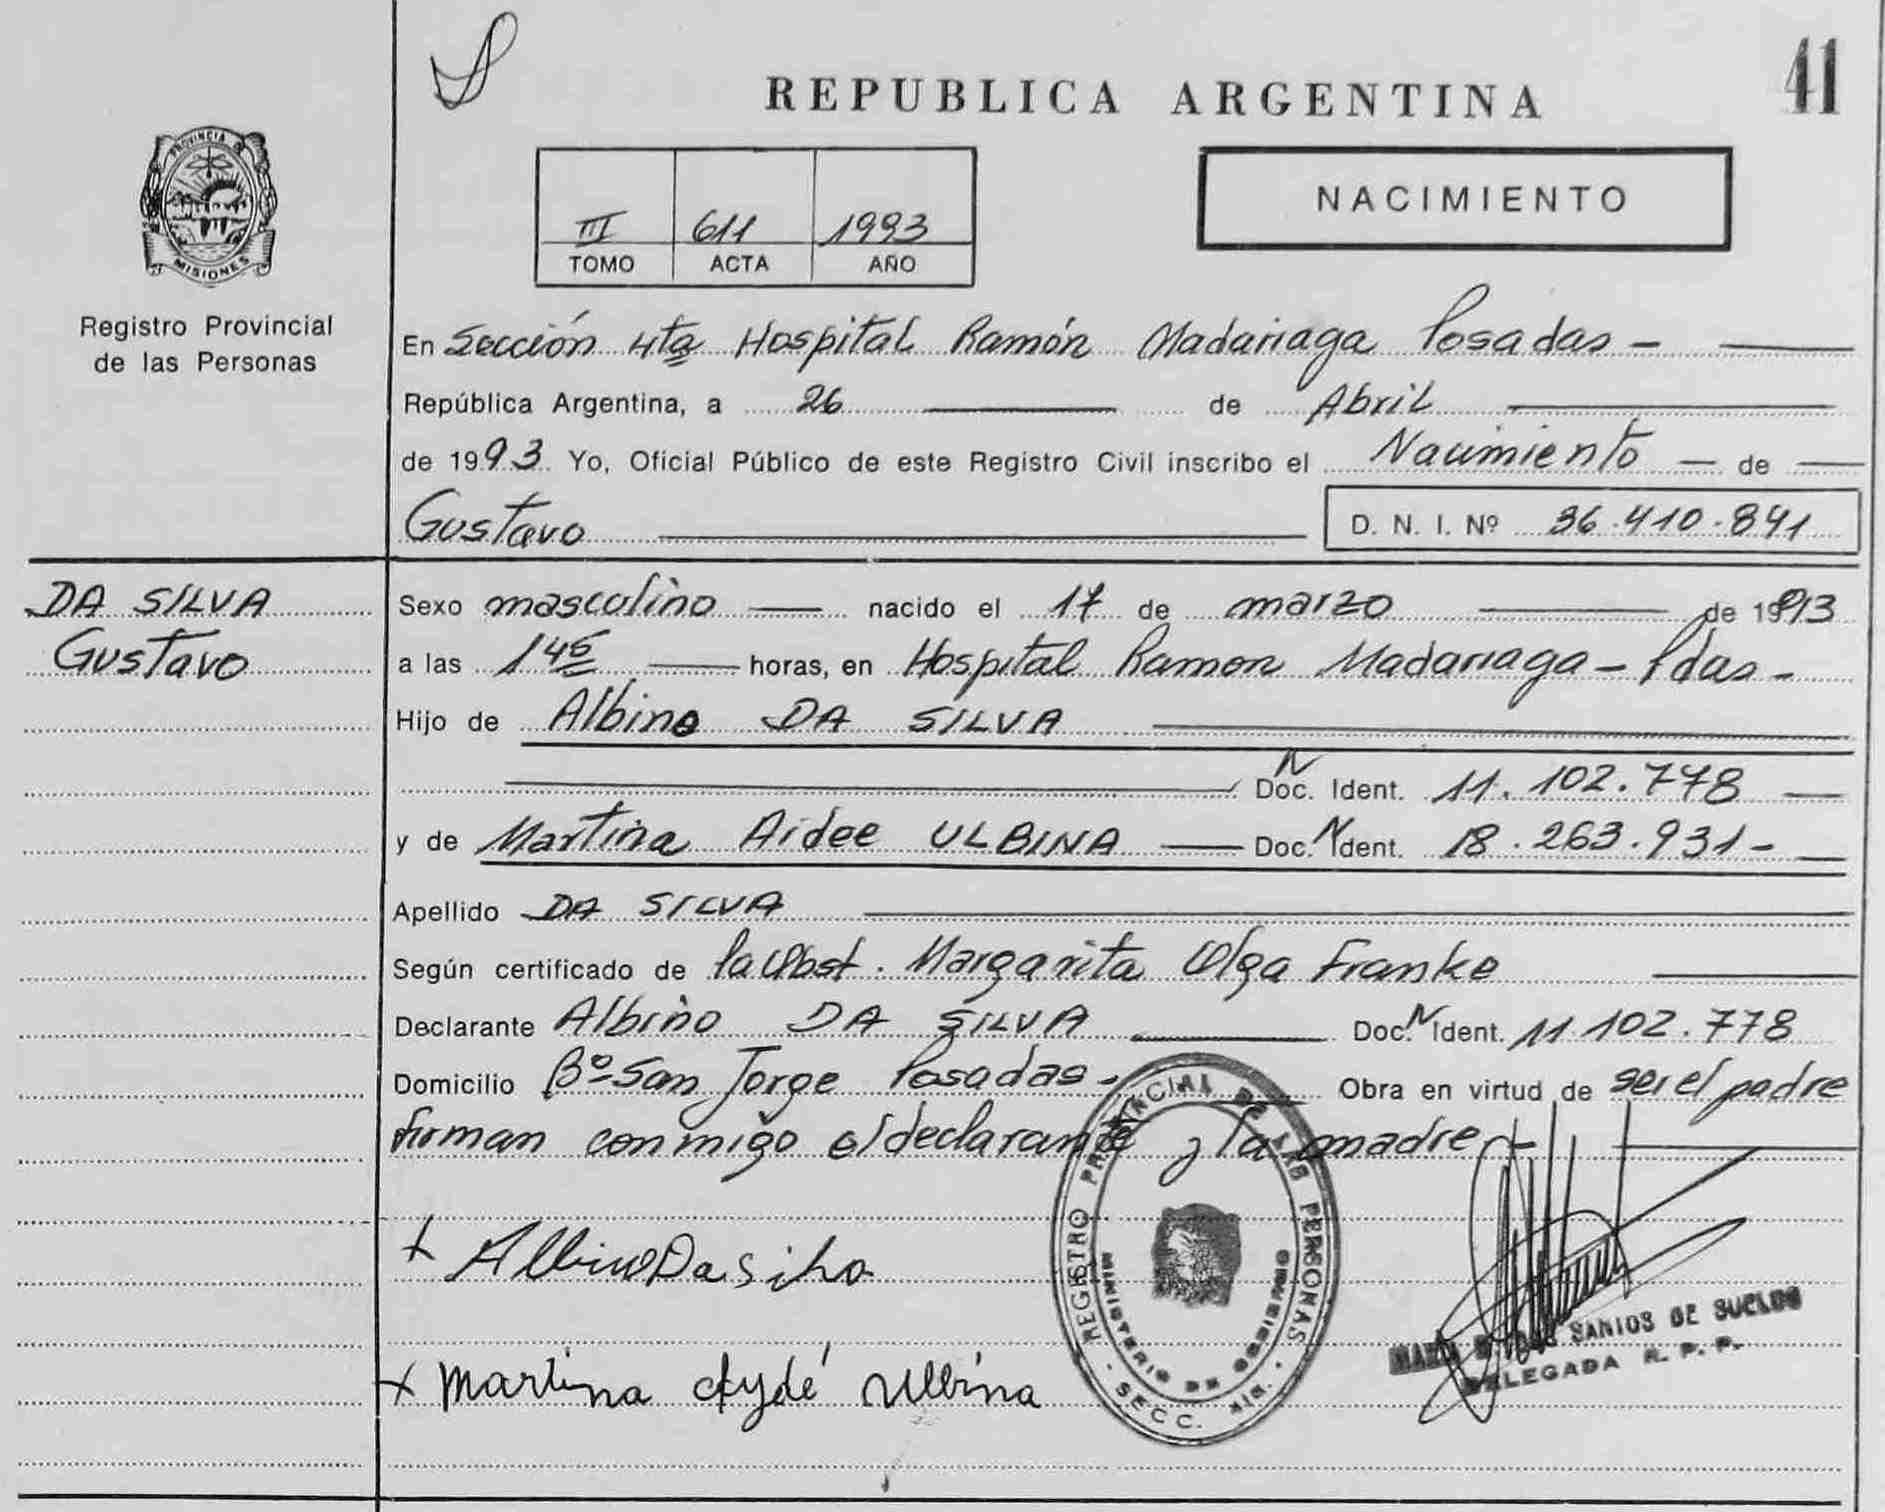 41
REPUBLICA ARGENTINA
NACIMIENTO
III 611 1993
TOMO ACTA AÑO
PROVINCIA DE
MISIONES
Registro Provincial
de las Personas
En Sección 4ta Hospital Ramón Madariaga Posadas -
República Argentina, a 26 de Abril
de 1993. Yo, Oficial Público de este Registro Civil inscribo el Nacimiento de
Gustavo D. N. I. Nº 36.410.841
DA SILVA
Gustavo
Sexo masculino nacido el 17 de marzo de 1993
a las 1 45 horas, en Hospital Ramon Madariaga - Pdas -
Hijo de Albino DA SILVA
Doc. N Ident. 11.102.778
y de Martina Aidee ULBINA Doc. N Ident. 18.263.931-
Apellido DA SILVA
Según certificado de la Obst. Margarita Olga Franke
Declarante Albino DA SILVA Doc. N Ident. 11.102.778
Domicilio Bº San Jorge Posadas - Obra en virtud de ser el padre
firman conmigo el declarante y la madre -
x Albino Da silva
x Martina Aydé Ulbina
REGISTRO PROVINCIAL DE LAS PERSONAS
MINISTERIO DE GOBIERNO
SECC.
SANTOS DE SUELDO
DELEGADA R. P. P.